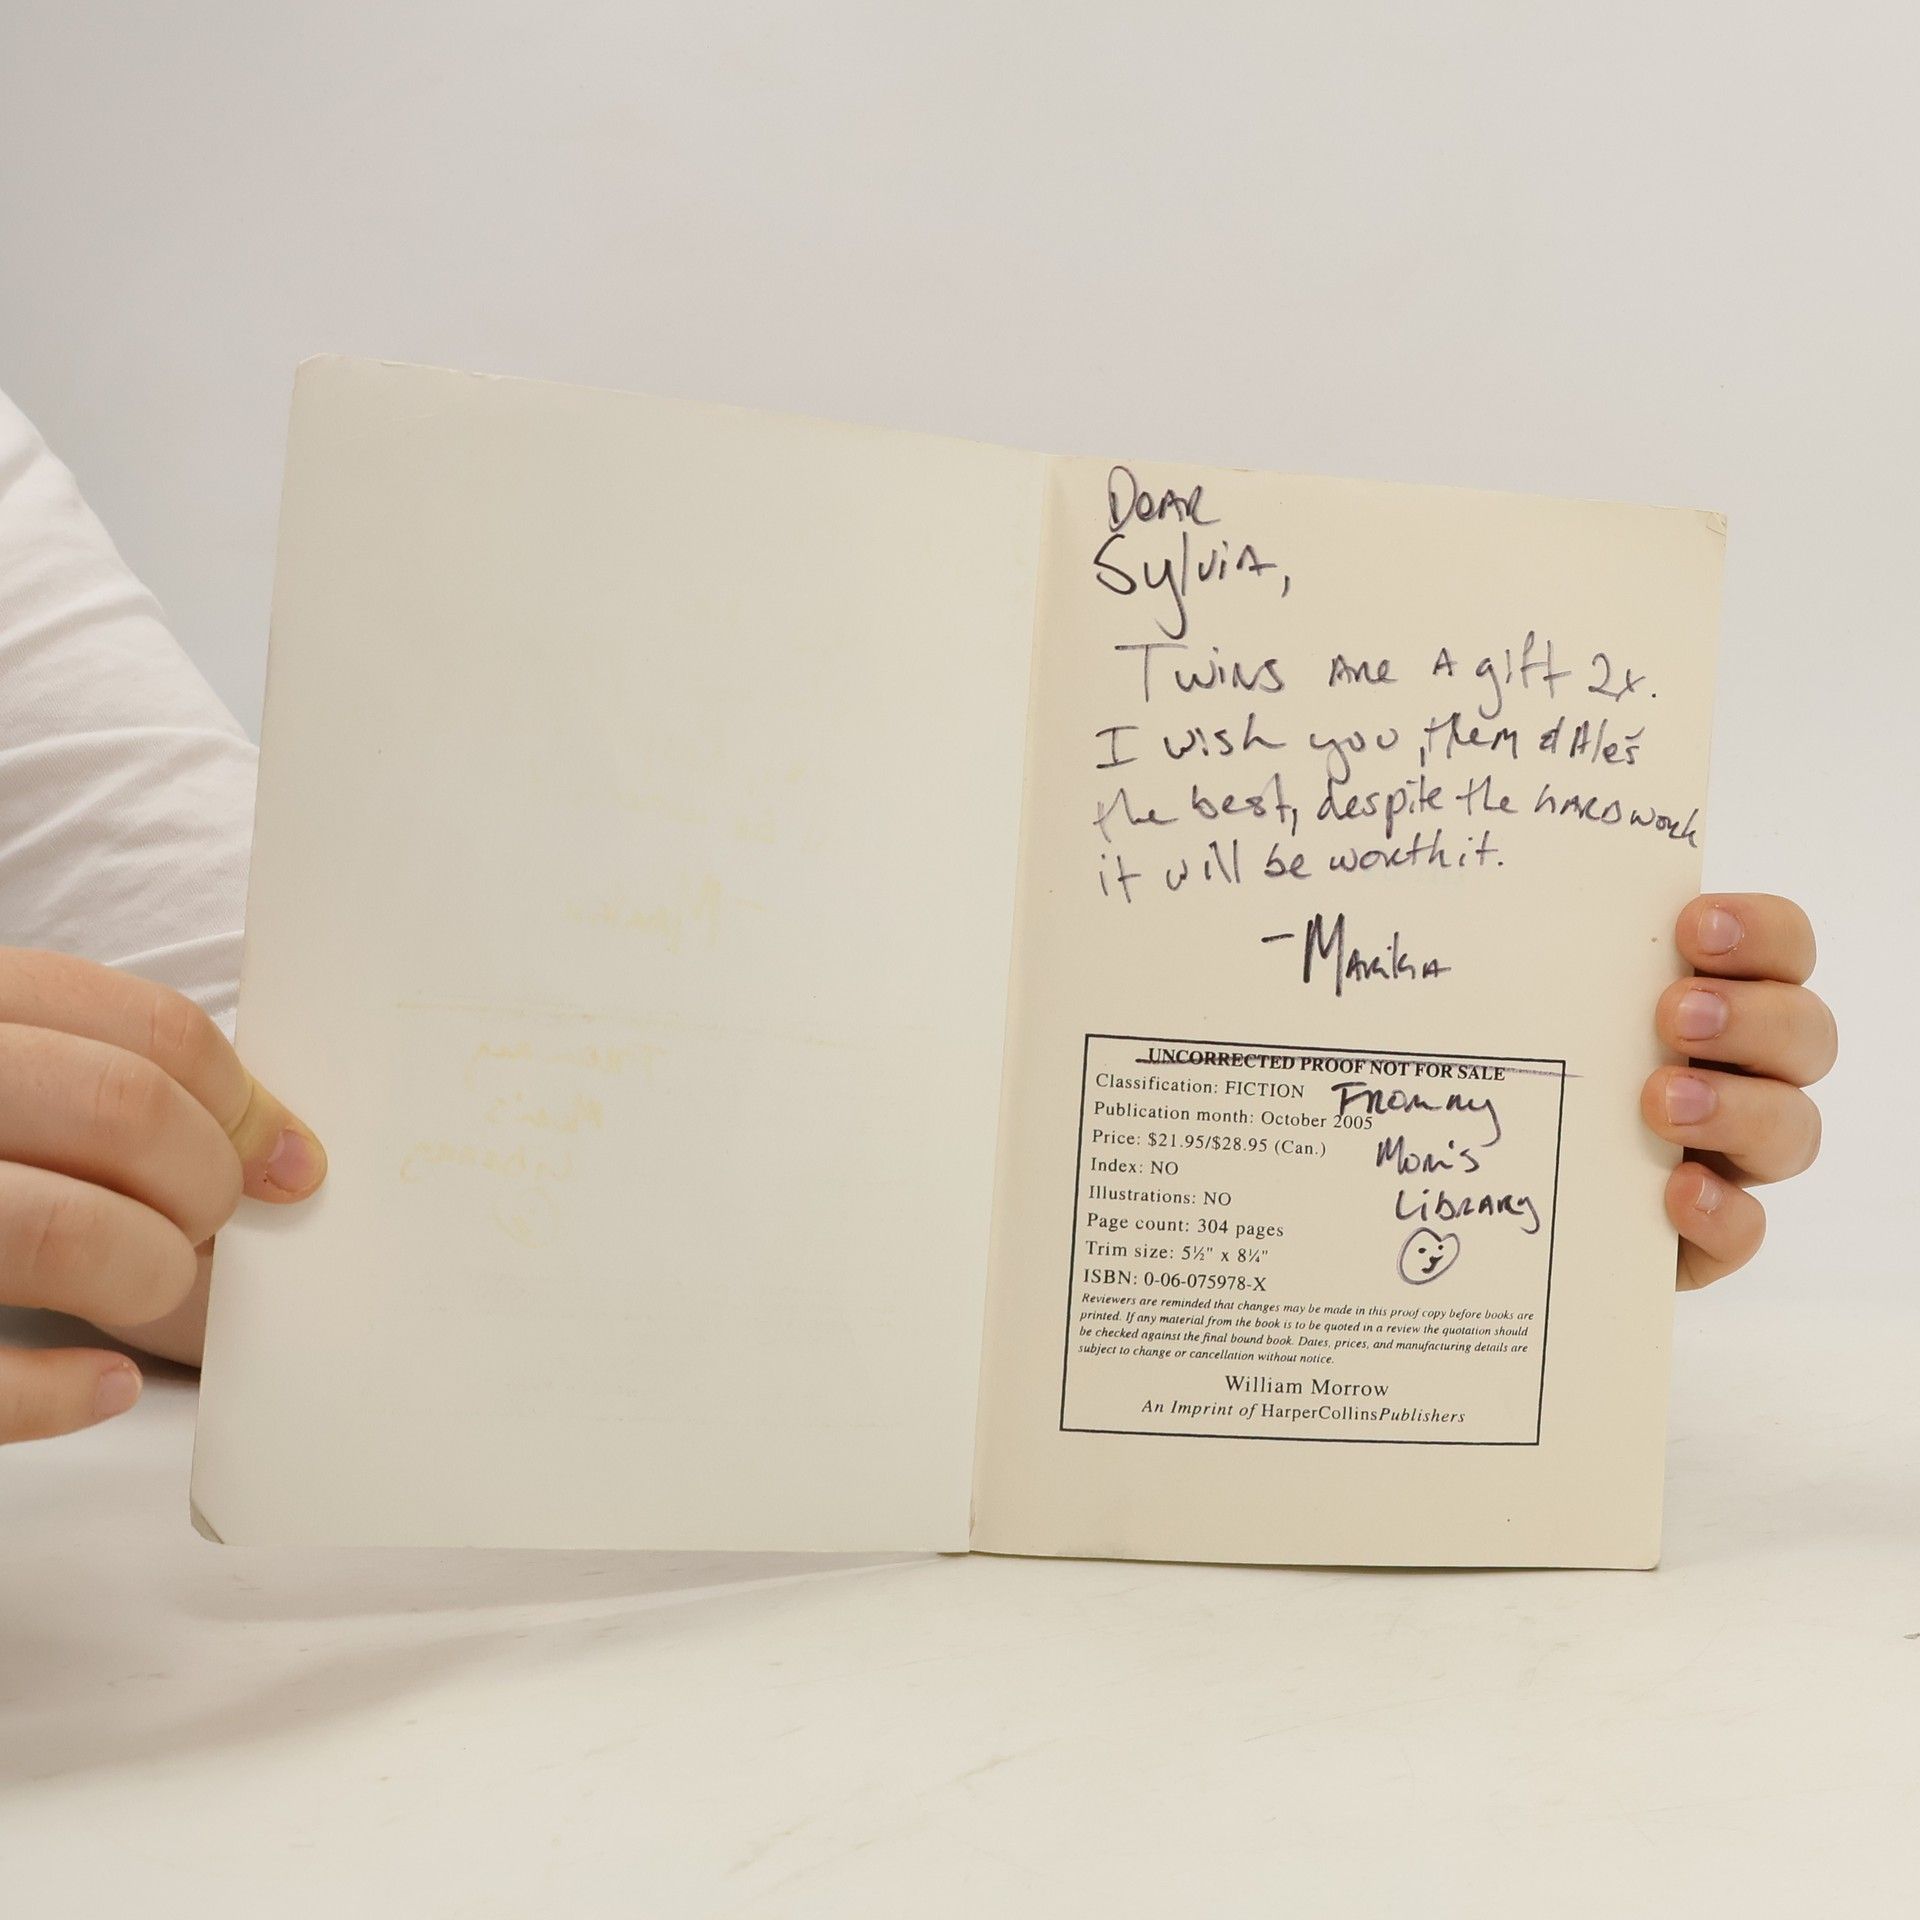 Dear
Sylvia,
Twins are a gift 2x.
I wish you, them & Aleš
the best, despite the hard work
it will be worth it.
- Marika
UNCORRECTED PROOF NOT FOR SALE
Classification: FICTION
From my
Publication month: October 2005
Price: $21.95/$28.95 (Can.)
Mom's
Index: NO
Illustrations: NO
Library
Page count: 304 pages
Trim size: 5½" x 8¼"
ISBN: 0-06-075978-X
Reviewers are reminded that changes may be made in this proof copy before books are
printed. If any material from the book is to be quoted in a review the quotation should
be checked against the final bound book. Dates, prices, and manufacturing details are
subject to change or cancellation without notice.
William Morrow
An Imprint of HarperCollinsPublishers